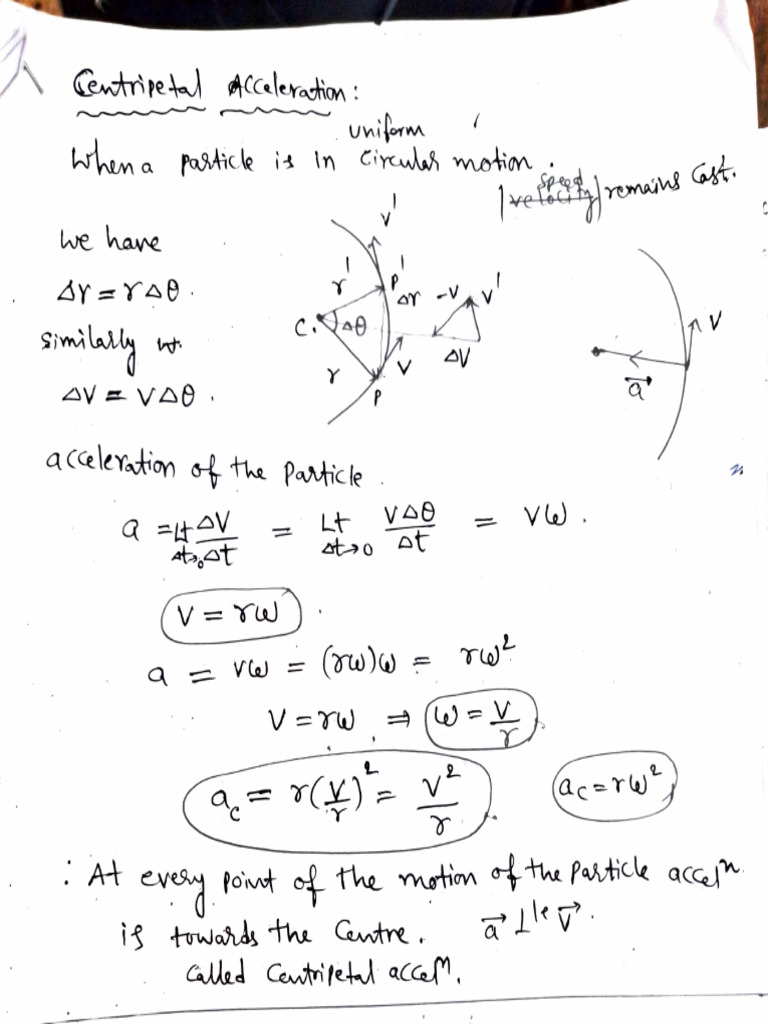 Centripetal Acceleration:
uniform
When a particle is in circular motion.
speed
|velocity| remains Cost.
we have
Δr = rΔθ.
similarly
ΔV = VΔθ.
V'
r'
P'
Δr
C.
Δθ
r
V
P
-V
V'
ΔV
V
a⃗
acceleration of the particle.
a = Lt ΔV/Δt = Lt VΔθ/Δt = Vω.
Δt→0 Δt→0
V = rω.
a = vω = (rω)ω = rω²
V = rω ⇒ ω = V/r
a_c = r(V/r)² = V²/r. a_c = rω²
: At every point of the motion of the particle accelⁿ
is towards the Centre. a⃗ ⊥le V⃗.
called Centripetal accelⁿ.